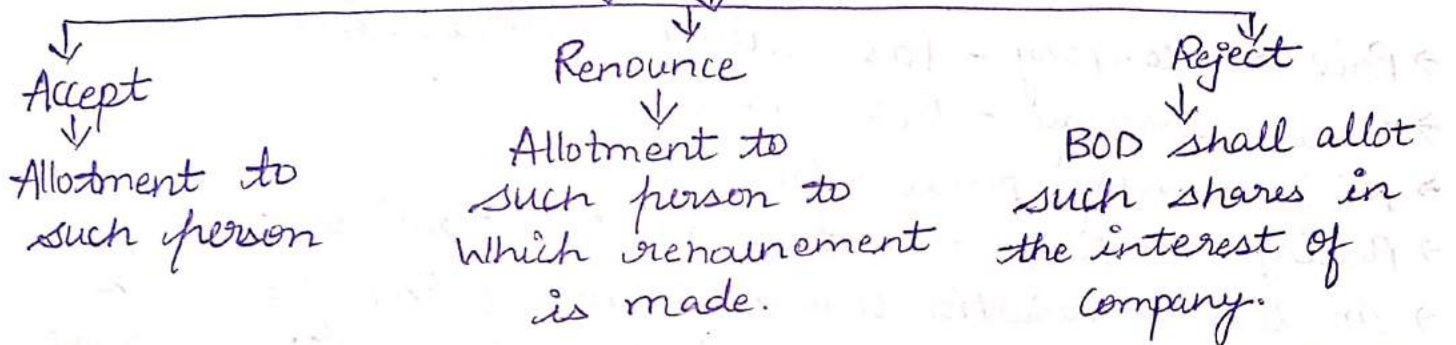 Accept
Allotment to
such person
Renounce
Allotment to
such person to
which renounement
is made.
Reject
BOD shall allot
such shares in
the interest of
Company.